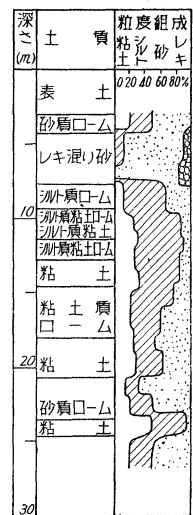 深さ(m)
土質
粒度組成
粘土 シルト 砂 レキ
0 20 40 60 80%
表土
砂質ローム
レキ混り砂
シルト質ローム
10
シルト質粘土ローム
シルト質粘土
シルト質粘土ローム
粘土
粘土質ローム
20
粘土
砂質ローム
粘土
30